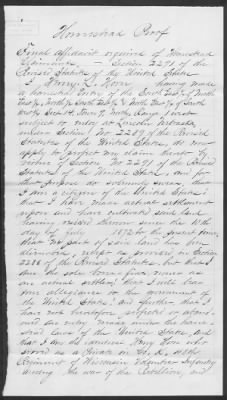 Homestead Proof
Final Affidavit required of Homestead
Claimants, - Section 2291 of the
Revised Statutes of the United States
I Henry L. Horn having made
a homestead Entry of the South East ¼ of North
East ¼, North ½ South East ¼ & North East ¼ of South
West ¼ Sec 14 Town 9, North, Range 1 West
subject to entry at Lincoln Nebraska
under Section No 2289 of the Revised
Statutes of the United States, do now
apply to perfect my claim thereto by
virtue of Section No 2291 of the Revised
Statutes of the United States, and for
that purpose do solemnly swear that
I am a citizen of the United States
that I have made actual settlement
upon and have cultivated said land
having resided thereon since the
day of July 1872 to the present time,
that no part of said land has been
alienated, except as provided in Section
2288 of the Revised Statutes, but that I
am the sole bona-fide owner as
an actual settler; that I will bear
true allegiance to the government of
the United States; and further, that I
have not heretofore perfected or aband-
oned an entry made under the home-
stead laws of the United States, and
that I am the identical Henry Horn who
served as a Private in Co.
Regiment of Wisconsin Volunteer Infantry
during the war of the Rebellion, and